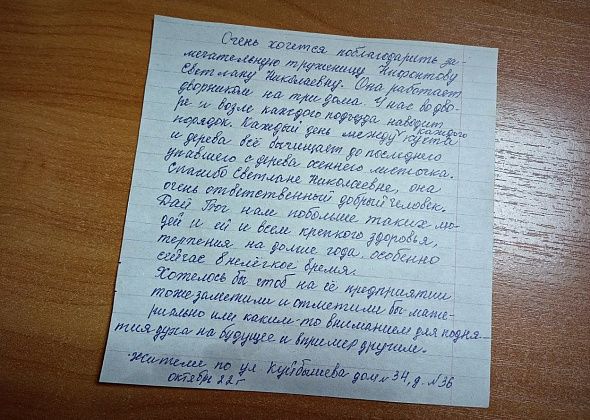 Очень хочется поблагодарить за-
мечательную труженицу Нифонтову
Светлану Николаевну. Она работает
дворником на три дома. У нас во дво-
ре и возле каждого подъезда наводит
порядок. Каждый день между каждого куста
и дерева всё вычищает до последнего
упавшего с дерева осеннего листочка.
Спасибо Светлане Николаевне, она
очень ответственный добрый человек.
Дай Бог нам побольше таких лю-
дей и ей и всем крепкого здоровья,
терпения на долгие года, особенно
сейчас в нелёгкое время.
Хотелось бы чтоб на её предприятии
тоже заметили и отметили бы мате-
риально или каким-то вниманием для подня-
тия духа на будущее и в пример другим.
Жители по ул Куйбышева дом №34, д. №36
октябрь 22г